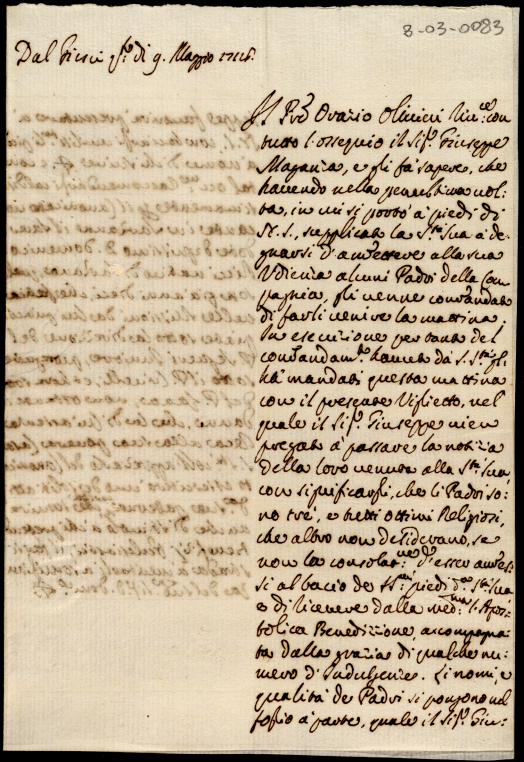 8-03-0083
Dal Giesù q.to dì 9. Maggio
Il P. Orazio Olivieri riu.ce con
tutto l'ossequio il Sig.r Giuseppe
Magania, e gli fà sapere, che
havendo nella penultima vol-
ta, in cui si portò a' piedi di
N.S., supplicata la S.tà Sua a de-
gnarsi d'am̃ettere alla sua
Udienza alcuni Padri della Com-
pagnia, gli venne com̃andato
di farli venire la mattina.
In esecuzione per tanto del
com̃andam.to havuto da S. S.tà gli
hà mandati questa mattina
con il presente Viglietto, nel
quale il Sig.r Giuseppe vien
pregato à passare la notizia
della loro venuta alla S.tà Sua
con significarli, che li Padri so-
no trè, e tutti ottimi Religiosi,
che altro non desiderano, se
non la consolaz.ne d'esser am̃es-
si al bacio de SS.mi piedi d.a S.tà Sua
e di ricevere dalla med.ma l'Apos-
tolica Benedizione, accompagna-
ta dalla grazia di qualche nu-
mero d'Indulgenze. Li nomi, e
qualità de Padri si pongono nel
foglio à parte, quale il Sig.r Giu-